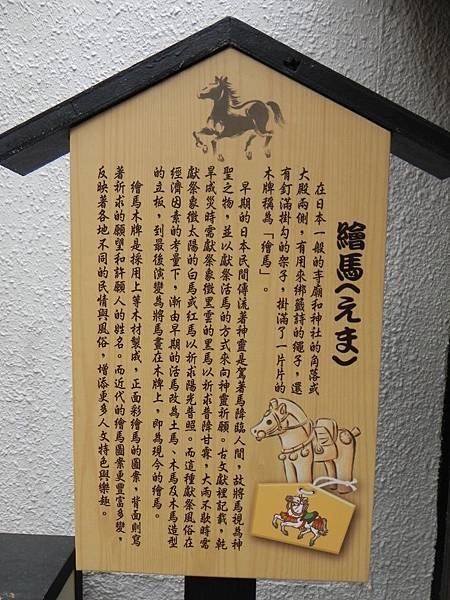 繪馬(えま)
在日本一般的寺廟和神社的角落或
大殿兩側，有用來綁籤詩的繩子，還
有釘滿掛勾的架子，掛滿了一片片的
木牌稱為「繪馬」。
早期的日本民間傳流著神靈是駕著馬降臨人間，故將馬視為神
聖之物，並以獻祭活馬的方式來向神靈祈願。古文獻裡記載，乾
旱成災時需獻祭象徵黑雲的黑馬以祈求普降甘霖，大雨不歇時需
獻祭象徵太陽的白馬或紅馬以祈求陽光普照。而這種獻祭風俗在
經濟因素的考量下，漸由早期的活馬改為土馬、木馬及木馬造型
的立板，到最後演變為將馬畫在木牌上，即為現今的繪馬。
繪馬木牌是採用上等木材製成，正面彩繪馬的圖案，背面則寫
著祈求的願望和許願人的姓名。而近代的繪馬圖案更豐富多變，
反映著各地不同的民情與風俗，增添更多人文特色與樂趣。